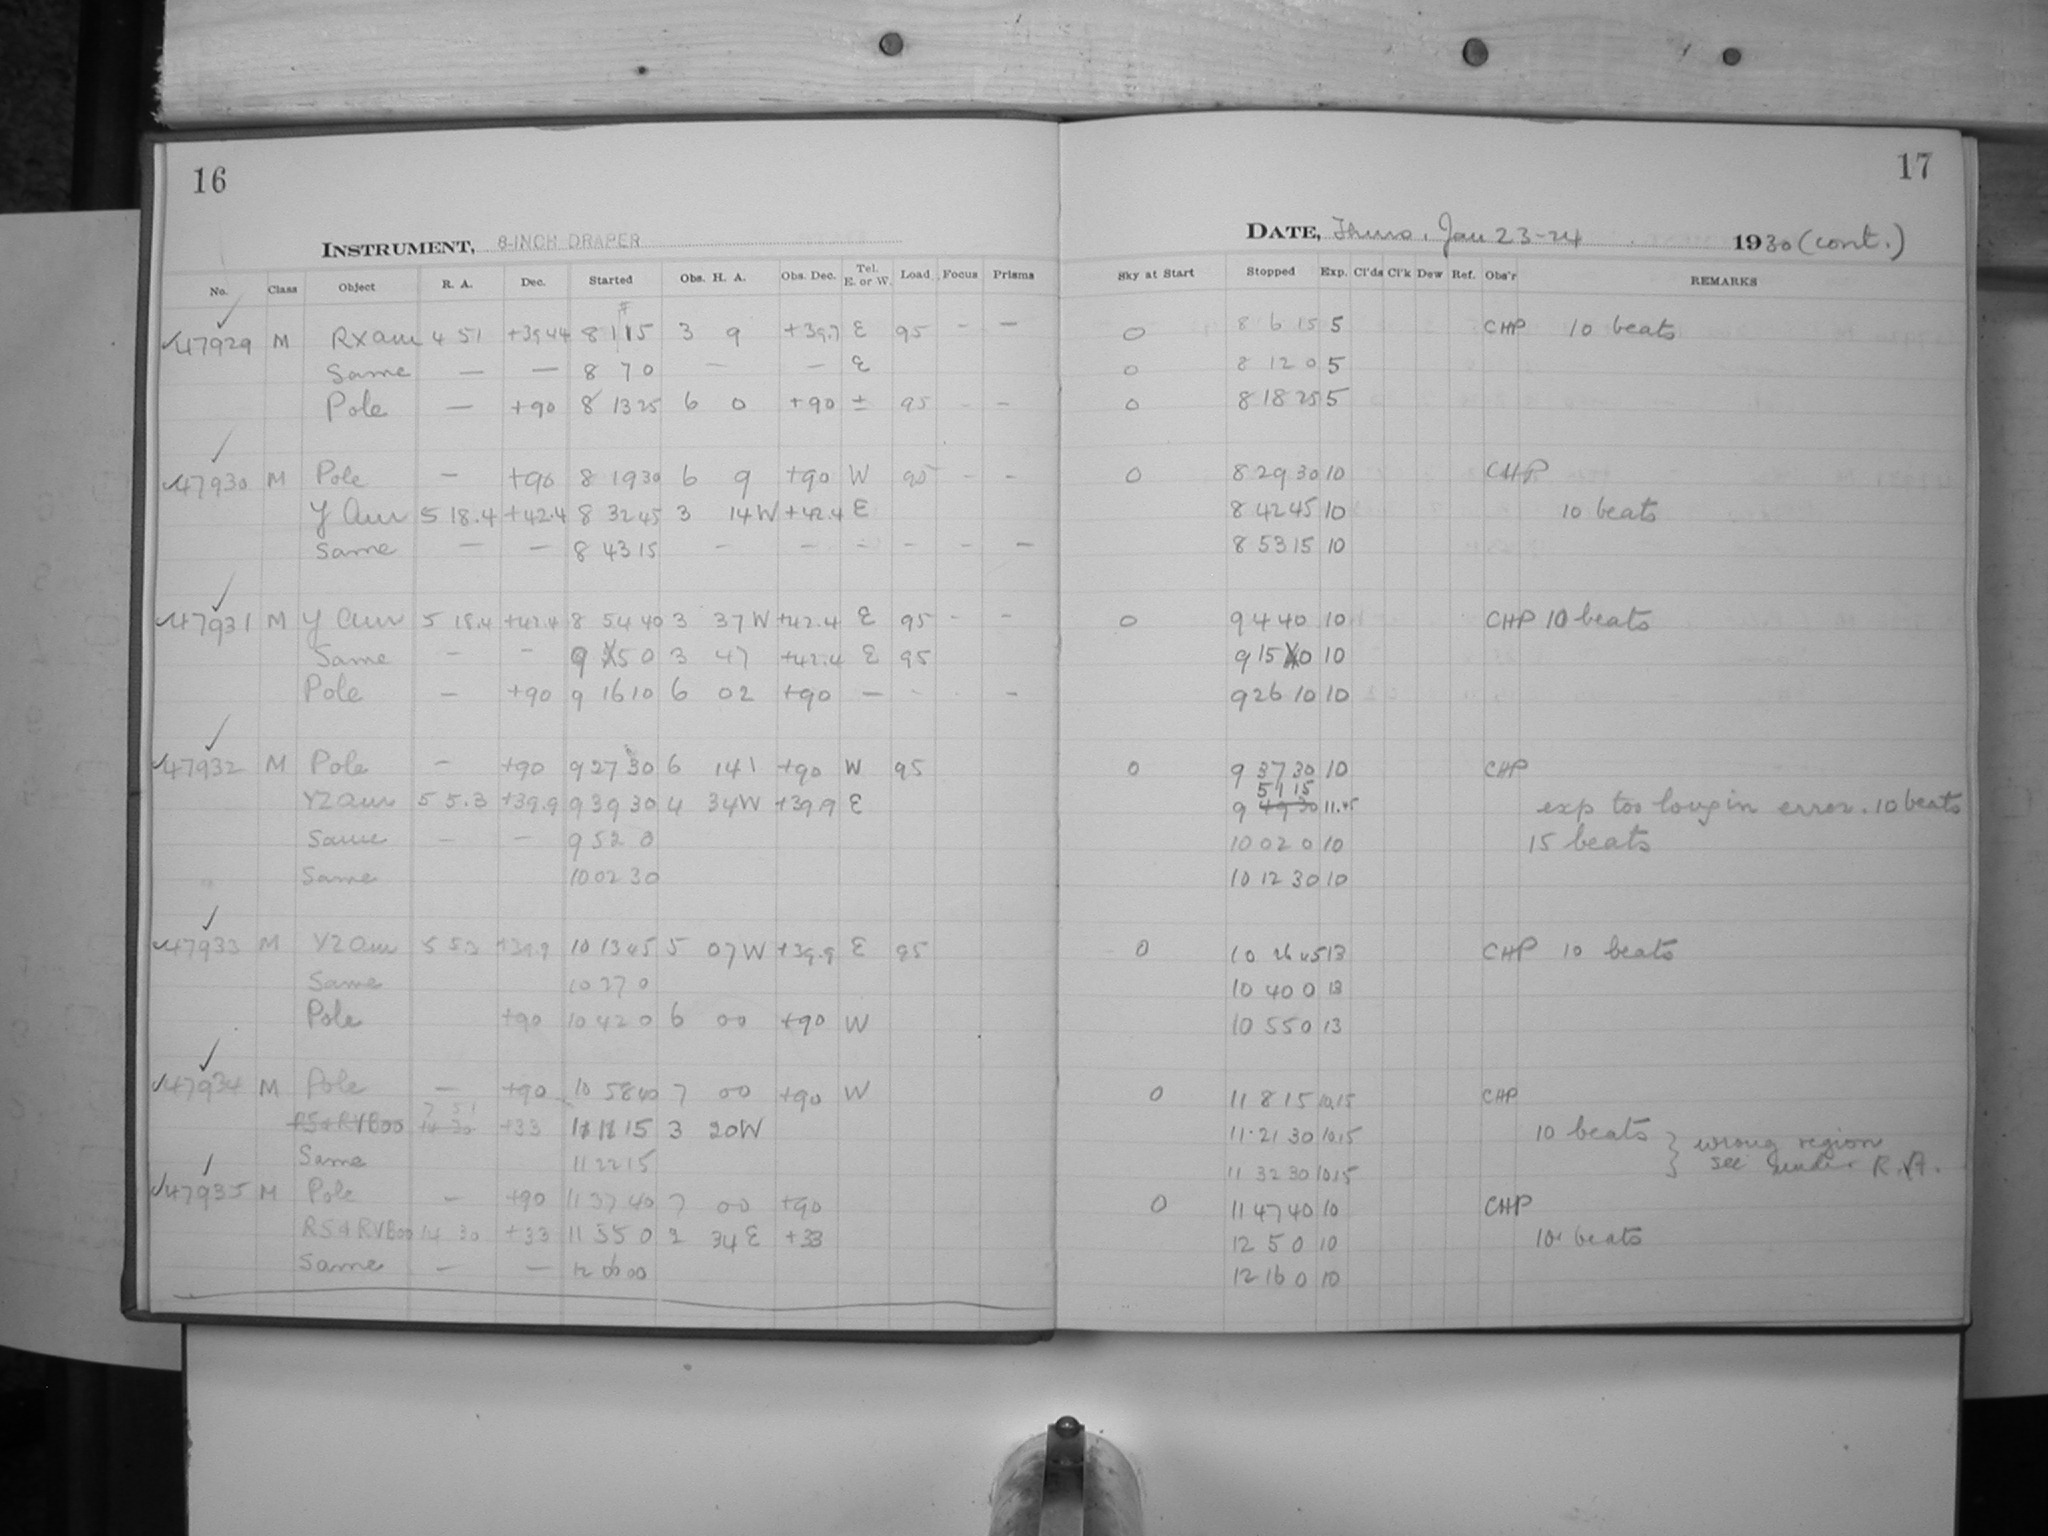 16
17
INSTRUMENT, 8-INCH DRAPER
DATE, Thurs. Jan 23-24 1930 (cont.)
No. Class Object R. A. Dec. Started Obs. H. A. Obs. Dec. Tel. E. or W. Load Focus Prisms Sky at Start Stopped Exp. Cl'ds Cl'k Dew Ref. Obs'r REMARKS
✓47929 M RX Aur 4 51 +39 44 8 1 15 3 9 +39.7 E 95 - - 0 8 6 15 5 CHP 10 beats
Same — — 8 7 0 — — E 0 8 12 0 5
Pole — +90 8 13 25 6 0 +90 ± 95 - - 0 8 18 25 5
✓47930 M Pole — +90 8 19 30 6 9 +90 W 95 - - 0 8 29 30 10 CHP
Y Aur 5 18.4 +42.4 8 32 45 3 14W +42.4 E 8 42 45 10 10 beats
Same — — 8 43 15 - - - - - - 8 53 15 10
✓47931 M Y Aur 5 18.4 +42.4 8 54 40 3 37W +42.4 E 95 - - 0 9 4 40 10 CHP 10 beats
Same - - 9 5 0 3 47 +42.4 E 95 9 15 0 10
Pole - +90 9 16 10 6 02 +90 — - - - 9 26 10 10
✓47932 M Pole - +90 9 27 30 6 141 +90 W 95 0 9 37 30 10 CHP
YZ Aur 5 5.3 +39.9 9 39 30 4 34W +39.9 E 9 49 30 51 15 11.45 exp too long in error. 10 beats
Same — — 9 52 0 10 02 0 10 15 beats
Same 10 02 30 10 12 30 10
✓47933 M YZ Aur 5 5.3 +39.9 10 13 45 5 07W +39.9 E 95 0 10 26 45 13 CHP 10 beats
Same 10 27 0 10 40 0 13
Pole +90 10 42 0 6 00 +90 W 10 55 0 13
✓47934 M Pole — +90 10 58 40 7 00 +90 W 0 11 8 15 10.15 CHP
7 51
RS & RV Boo 14 30 +33 11 11 15 3 20W 11 21 30 10.15 10 beats } wrong region
Same 11 22 15 11 32 30 10.15 see under R.A.
✓47935 M Pole - +90 11 37 40 7 00 +90 0 11 47 40 10 CHP
RS & RV Boo 14 30 +33 11 55 0 2 34 E +33 12 5 0 10 10 beats
Same — — 12 6 00 12 16 0 10